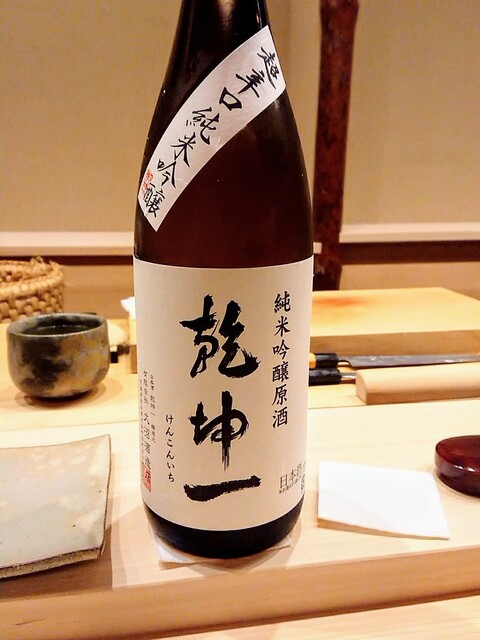 超辛口純米吟醸
純米吟醸原酒
乾坤一
けんこんいち
大沼酒造
日本酒